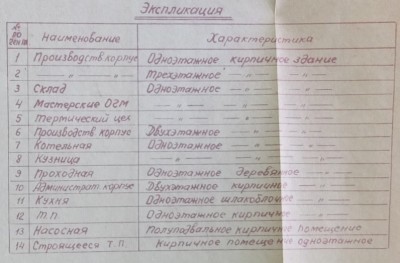 Экспликация
№ по плану Наименование Характеристика
1 Производств корпус Одноэтажное кирпичное здание
2 — „ — „ — Трехэтажное — „ — „ —
3 Склад Одноэтажное — „ — „ —
4 Мастерские ОГМ — „ — „ — „ —
5 Термический цех — „ — „ — „ —
6 Производств корпус Двухэтажное — „ — „ —
7 Котельная Одноэтажное — „ — „ —
8 Кузница — „ — „ — „ —
9 Проходная Одноэтажное деревянное — „ —
10 Администрат корпус Двухэтажное кирпичное — „ —
11 Кухня Одноэтажное шлакоблочное — „ —
12 Т.П. Одноэтажное кирпичное — „ —
13 Насосная Полуподвальное кирпичное помещение
14 Строящееся Т.П. Кирпичное помещение одноэтажное